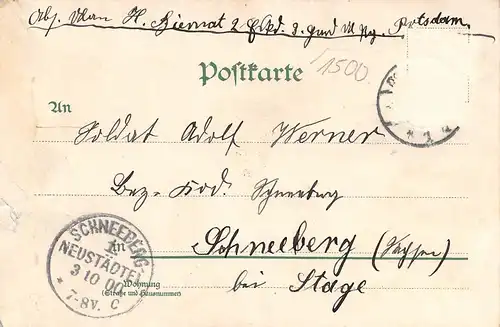 Abs. Ulan H. Biernat 2 Eskd. 3. Gard Ul Rg. Potsdam.
Postkarte
1500
An
Soldat Adolf Werner
Bez. Kod. Schneeberg
in
Schneeberg (Sachsen)
bei Stage
Wohnung
(Straße und Hausnummer)
SCHNEEBERG-
NEUSTÄDTEL
1
3 10 00
* 7-8V. C